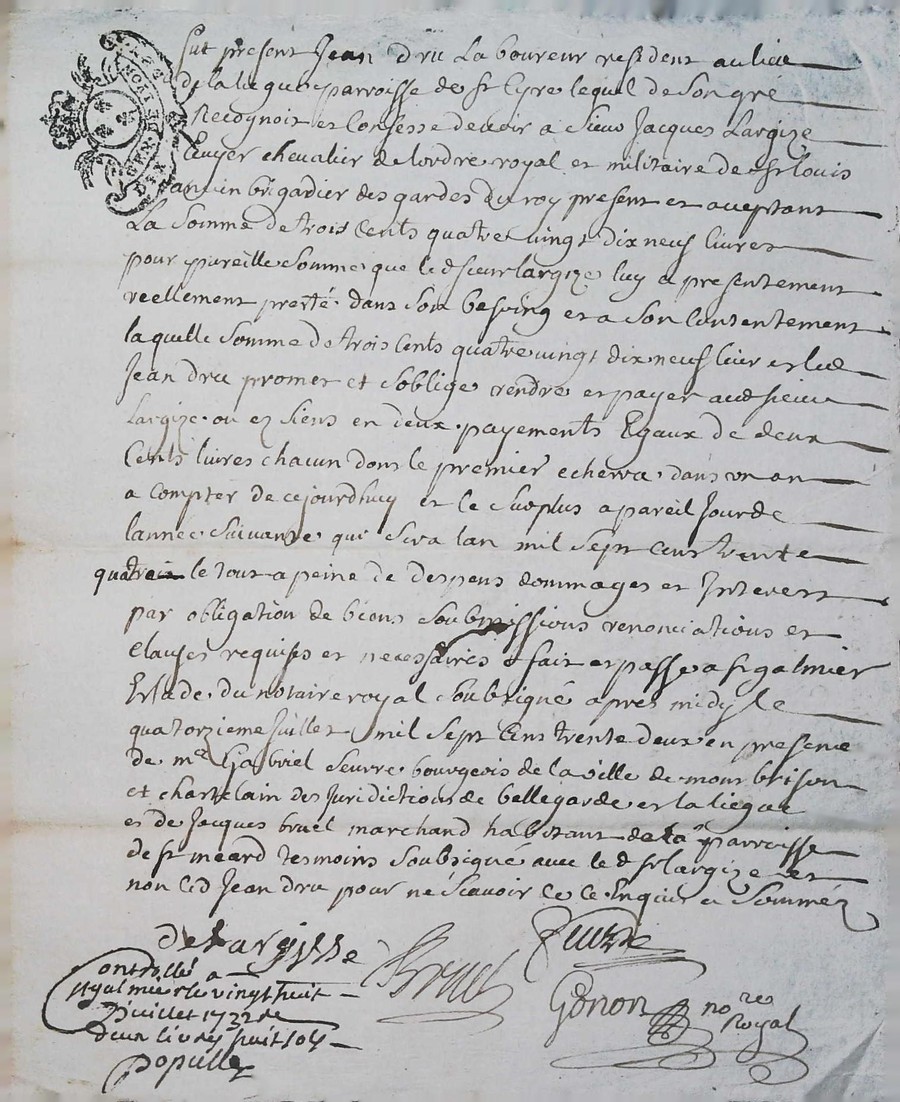 fut présent Jean dru Laboureur resident au lieu
de la liegue parroisse de st Cyre lequel de son gré
Recognoit et Confesse devoir a Sieur Jacques Largize
Ecuyer chevalier de lordre royal et militaire de st Louis
ancien brigadier des gardes du roy present et aceptant
La somme de trois Cents quatre vingt dix neuf livres
pour pareille somme que le d sieur largize luy a presentement
reellement presté dans son besoing et a son Contentement
laquelle somme de trois Cents quatre vingt dix neuf livres led
Jean dru promet et soblige rendre et payer aud sieur
Largize ou ez siens en deux payements Egaux de deux
Cents livres chacun dont le premier echerra dans un an
a compter de cejourdhuy et le surplus a pareil Jour de
lannée suivante qui sera lan mil sept cens trente
quatre le tout a peine de despens dommages et Interest
par obligation de biens soubmissions renonciations et
Clauses requises et necessaires fait et passé a st galmier
Estude du notaire royal soubsigné apres midy le
quatorzieme Juillet mil sept Cens trente deux en presence
de me Gabriel seurre bourgeois de la ville de montbrison
et chastelain des Juridictions de bellegarde et la liegue
et de Jacques bruel marchand habitant de la parroisse
de st meard tesmoins soubsigné avec le d sr largize et
non led Jean dru pour ne scavoir ce Enquis et sommé
de Largisse
Seurre
Bruel
Gonon nore Royal
Controllé a
st galmier le vingt huit
Juillet 1732 re
deux livres huit sols
populle